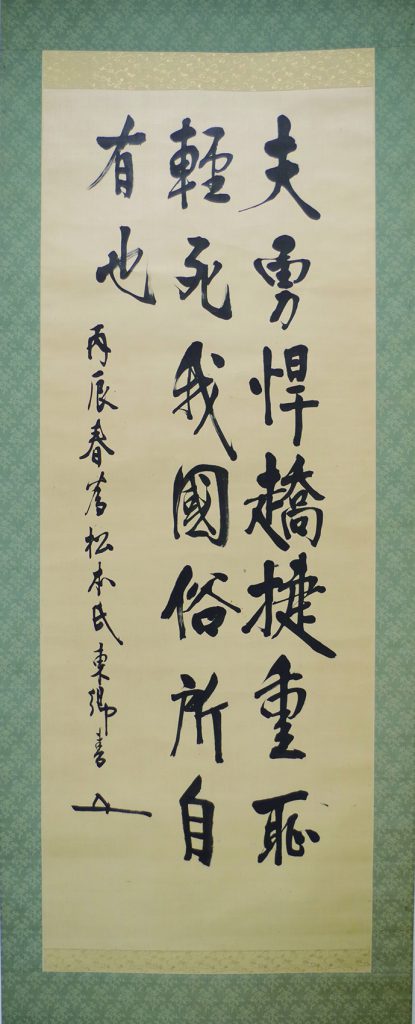 夫勇悍趫捷重恥
輕死我國俗所自
有也
丙辰春為松本氏東郷書